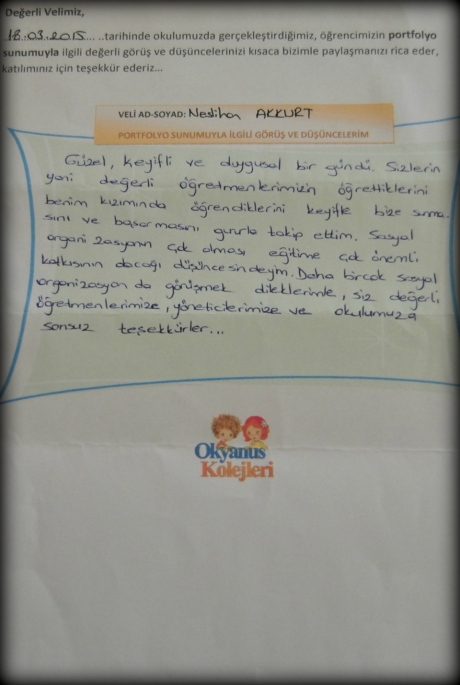 Değerli Velimiz,
18.03.2015... ..tarihinde okulumuzda gerçekleştirdiğimiz, öğrencimizin portfolyo
sunumuyla ilgili değerli görüş ve düşüncelerinizi kısaca bizimle paylaşmanızı rica eder,
katılımınız için teşekkür ederiz...
VELİ AD-SOYAD: Neslihan AKKURT
PORTFOLYO SUNUMUYLA İLGİLİ GÖRÜŞ VE DÜŞÜNCELERİM
Güzel, keyifli ve duygusal bir gündü. Sizlerin
yani değerli öğretmenlerimizin öğrettiklerini
benim kızımında öğrendiklerini keyifle bize sunma-
sını ve başarmasını gururla takip ettim. Sosyal
organizasyonun çok olması eğitime çok önemli
katkısının olacağı düşüncesindeyim. Daha birçok sosyal
organizasyon da görüşmek dileklerimle, siz değerli
öğretmenlerimize, yöneticilerimize ve okulumuza
sonsuz teşekkürler...
Okyanus
Kolejleri